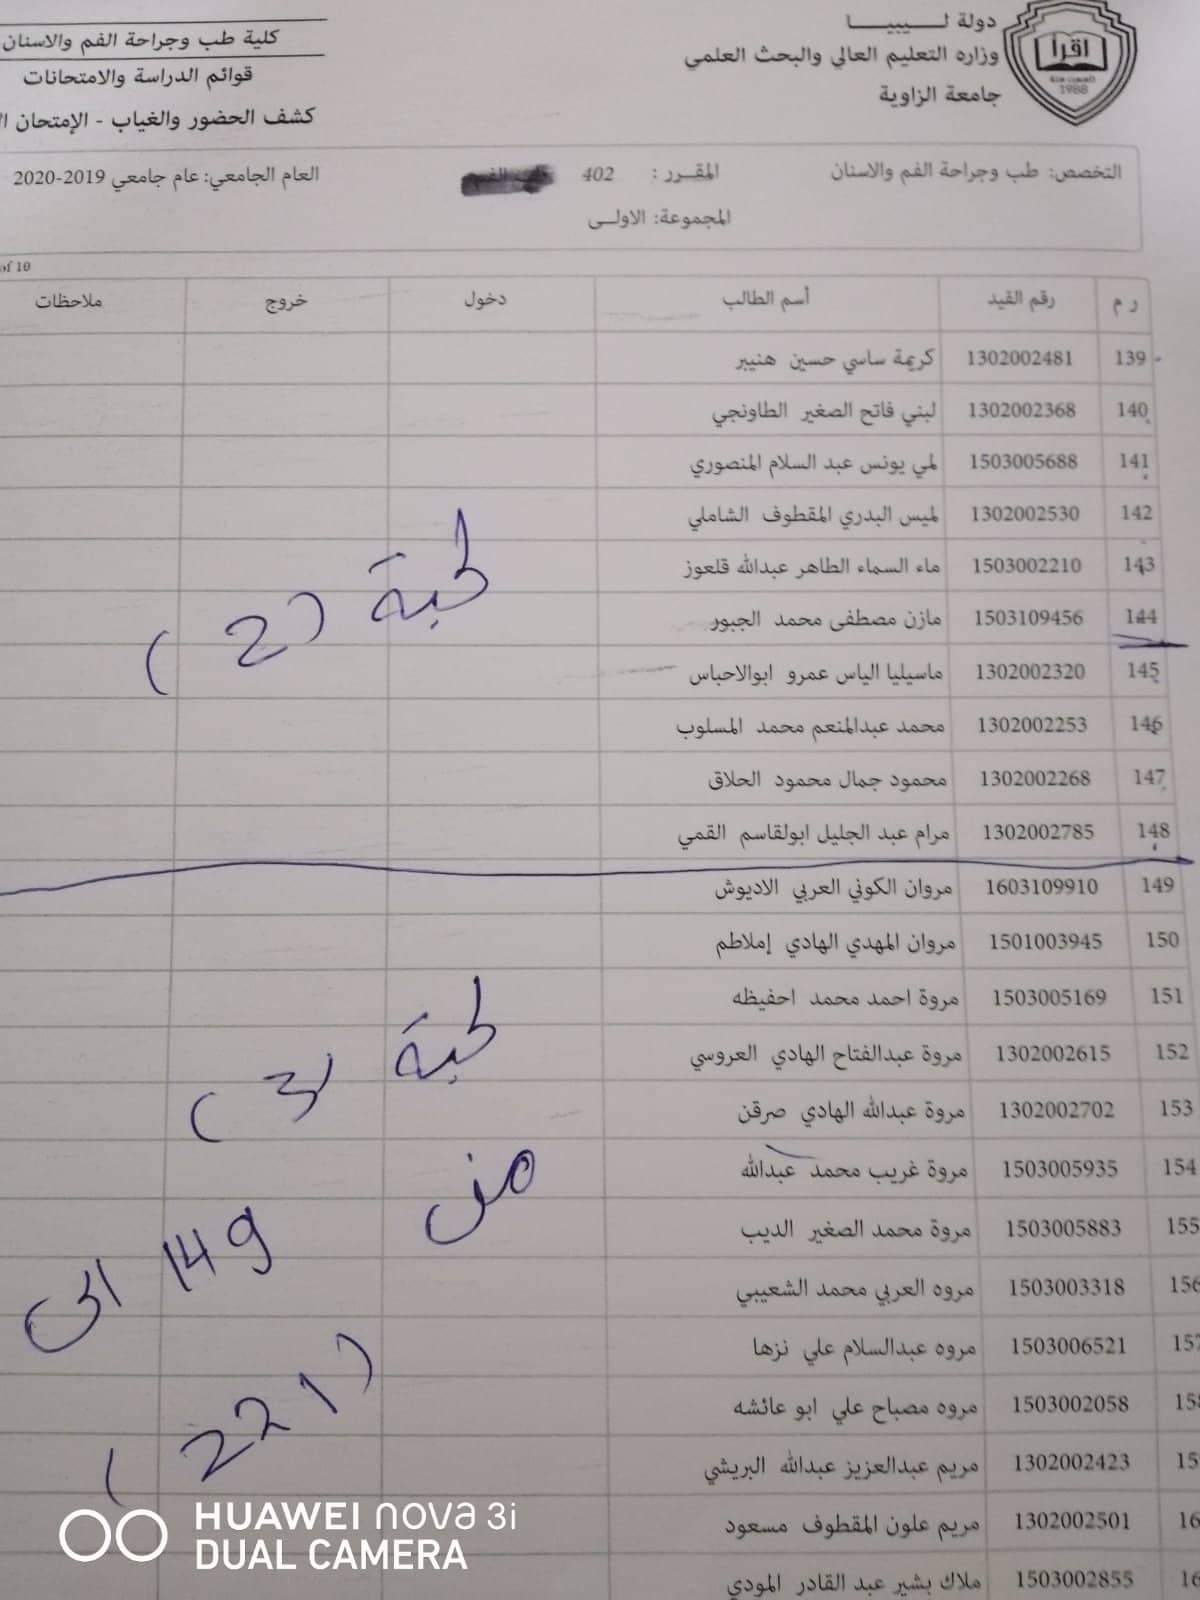 دولة ليبيا
وزاره التعليم العالي والبحث العلمي
جامعة الزاوية
اقرأ
1988
كلية طب وجراحة الفم والاسنان
قوائم الدراسة والامتحانات
كشف الحضور والغياب - الإمتحان
التخصص: طب وجراحة الفم والاسنان المقرر: 402 العام الجامعي: عام جامعي 2019-2020
المجموعة: الاولى
of 10
ر م رقم القيد أسم الطالب دخول خروج ملاحظات
139 1302002481 كريمة ساسي حسين هنيبر
140 1302002368 لبني فاتح الصغير الطاونجي
141 1503005688 لمي يونس عبد السلام المنصوري
142 1302002530 لميس البدري المقطوف الشاملي
143 1503002210 ماء السماء الطاهر عبدالله قلعوز
144 1503109456 مازن مصطفى محمد الجبور
لجنة (2)
145 1302002320 ماسيليا الياس عمرو ابوالاحباس
146 1302002253 محمد عبدالمنعم محمد المسلوب
147 1302002268 محمود جمال محمود الحلاق
148 1302002785 مرام عبد الجليل ابولقاسم القمي
149 1603109910 مروان الكوني العربي الاديوش
150 1501003945 مروان المهدي الهادي إملاطم
151 1503005169 مروة احمد محمد احفيظه
152 1302002615 مروة عبدالفتاح الهادي العروسي
لجنة (3)
153 1302002702 مروة عبدالله الهادي صرقن
154 1503005935 مروة غريب محمد عبدالله
155 1503005883 مروة محمد الصغير الديب
من 149 الى
156 1503003318 مروه العربي محمد الشعيبي
157 1503006521 مروه عبدالسلام علي نزها
158 1503002058 مروه مصباح علي ابو عائشه
(221)
15 1302002423 مريم عبدالعزيز عبدالله البريشي
16 1302002501 مريم علون المقطوف مسعود
16 1503002855 ملاك بشير عبد القادر المودي
HUAWEI nova 3i
DUAL CAMERA